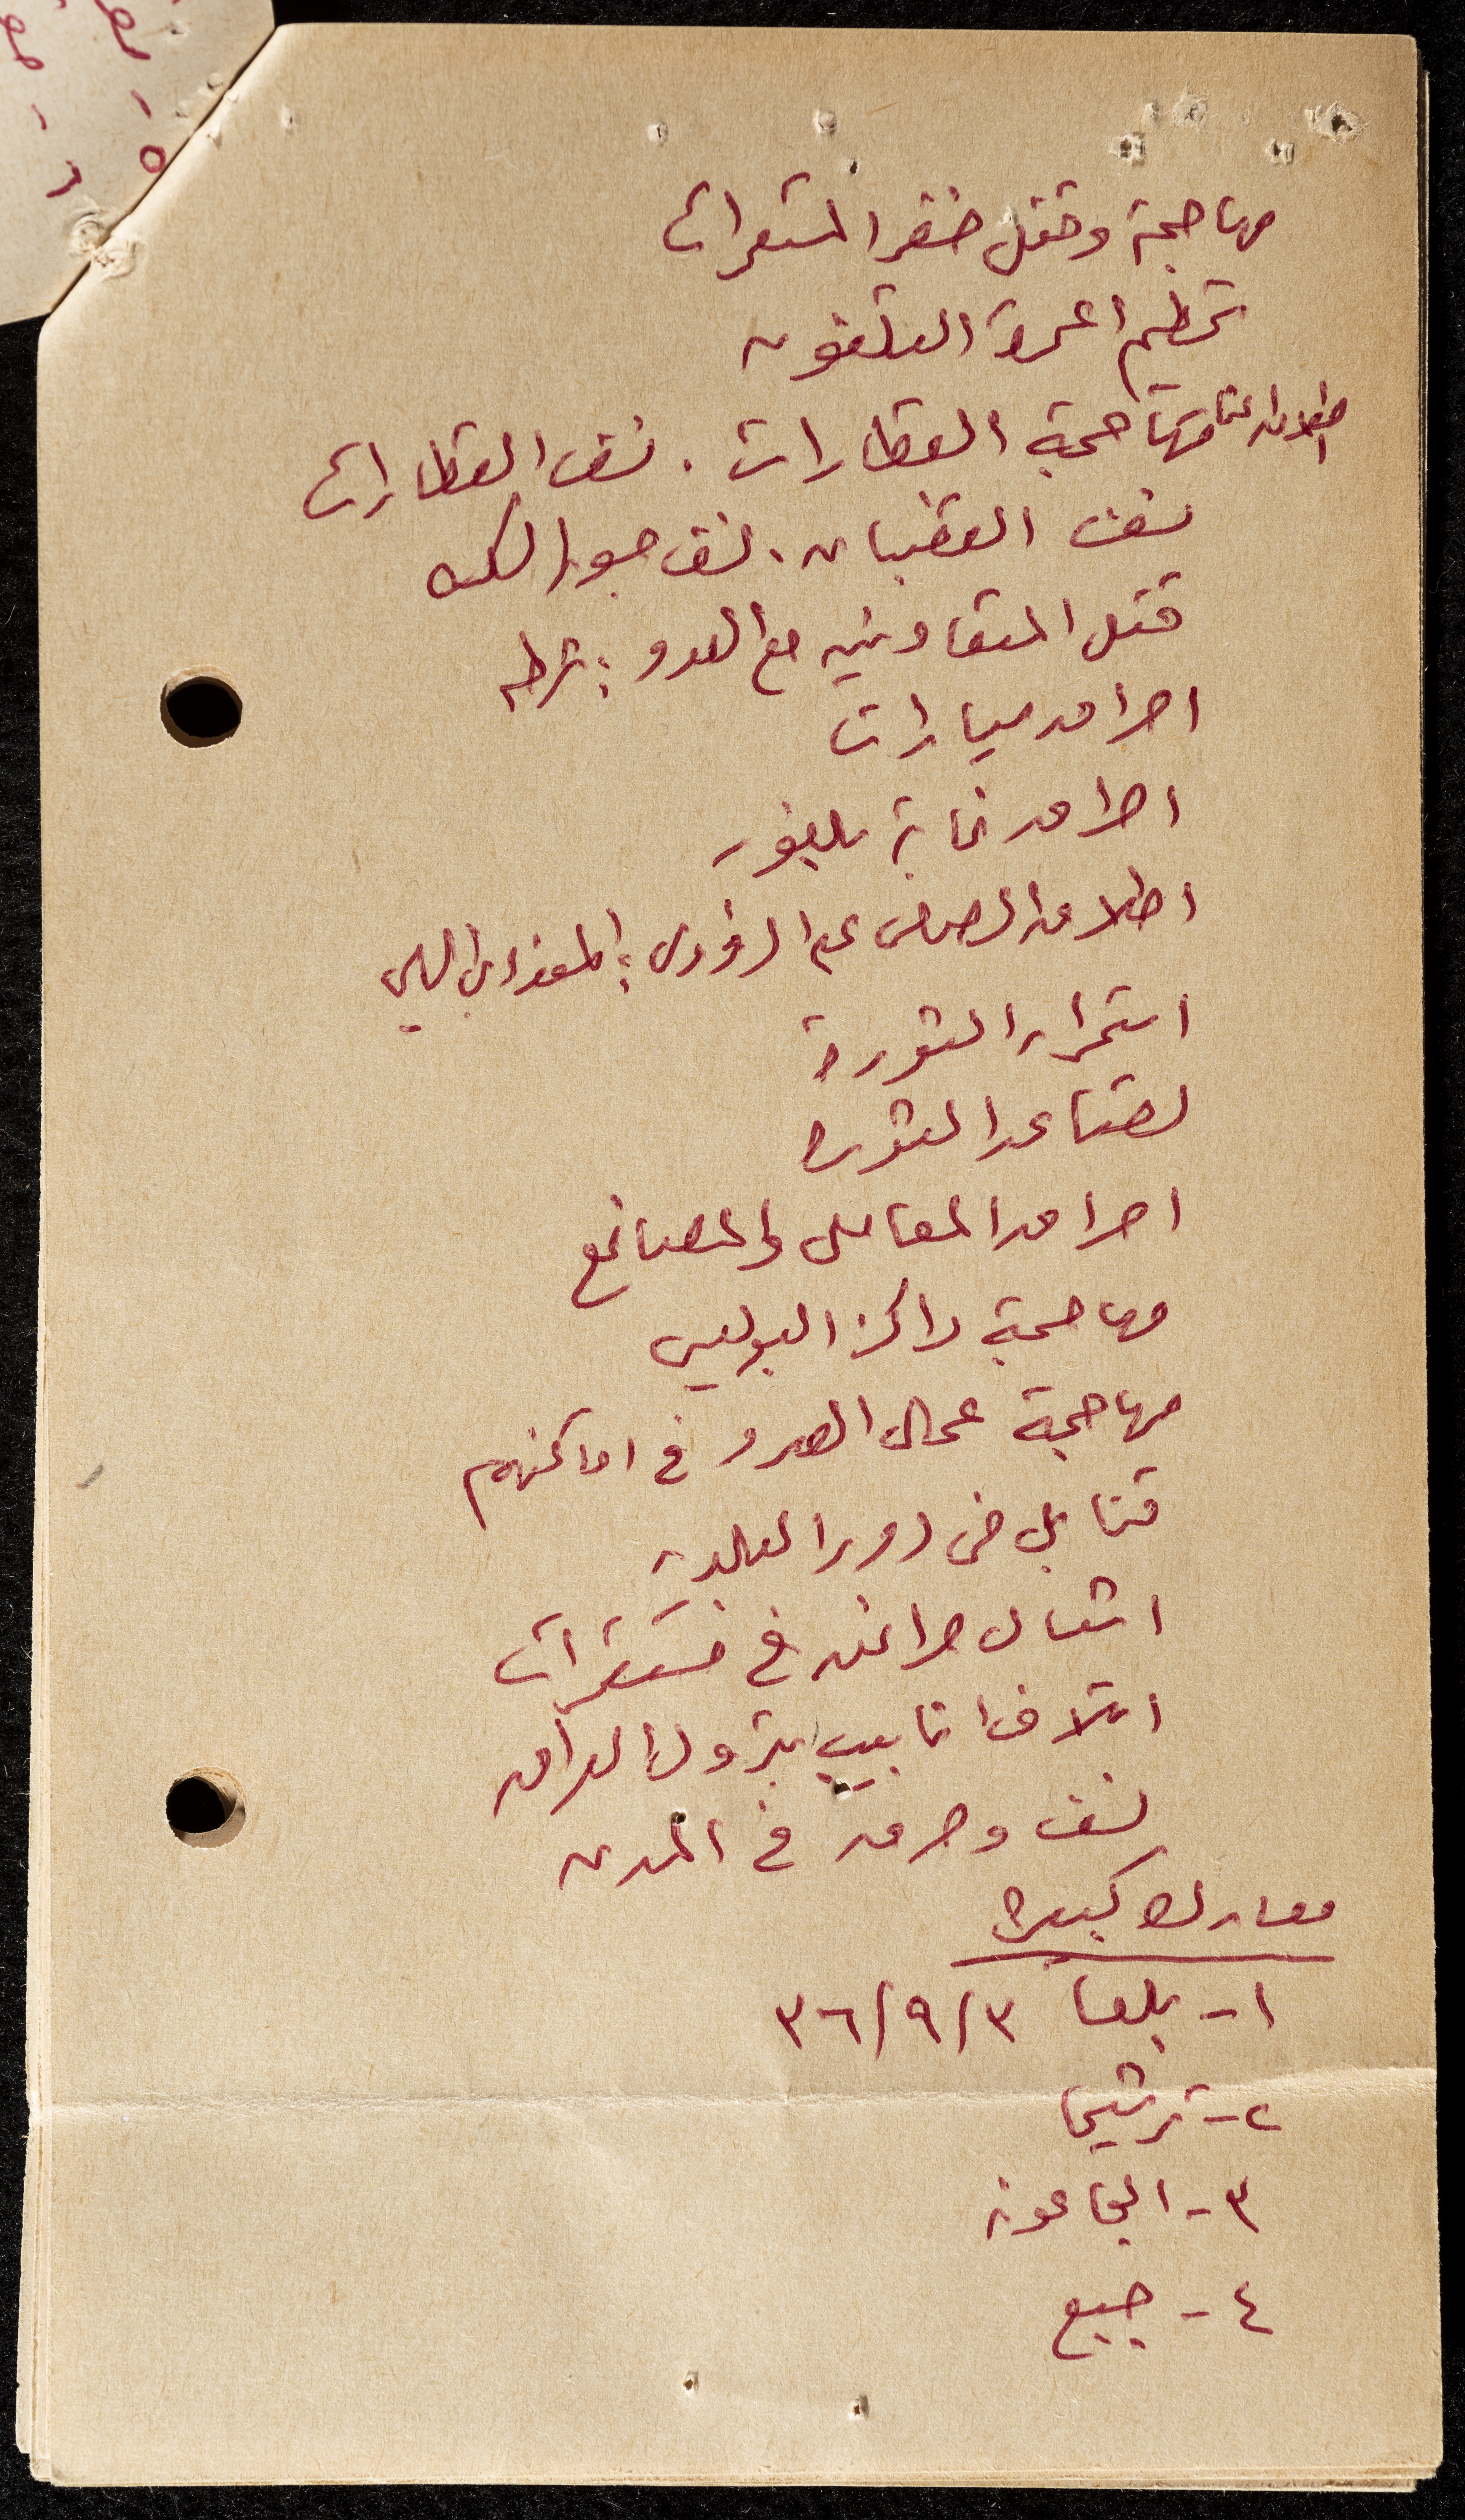 مهاجمة وقتل خفر المستعمرات
تحطيم اعمدة التلفون
مهاجمة القطارات . نسف القطارات
نسف القضبان . نسف جسور السكه
قتل المتعاونين مع العدو : شرطه
احراق سيارات
احراق غابة بلفور
اطلاق الرصاص على الدوريات :
استمرار الثورة
تصاعد الثوره
احراق المعامل والمصانع
مهاجمة مراكز البوليس
مهاجمة عمال العدو في اماكنهم
قنابل في دور
اشعال حرائق في مستعمرات
اتلاف انابيب بترول العراق
نسف وحرق في المدن
معارك كبيره
١- بلعا ٣/٩/٣٦
٢- ترشيحا
٣- الجاعونه
٤- جبع